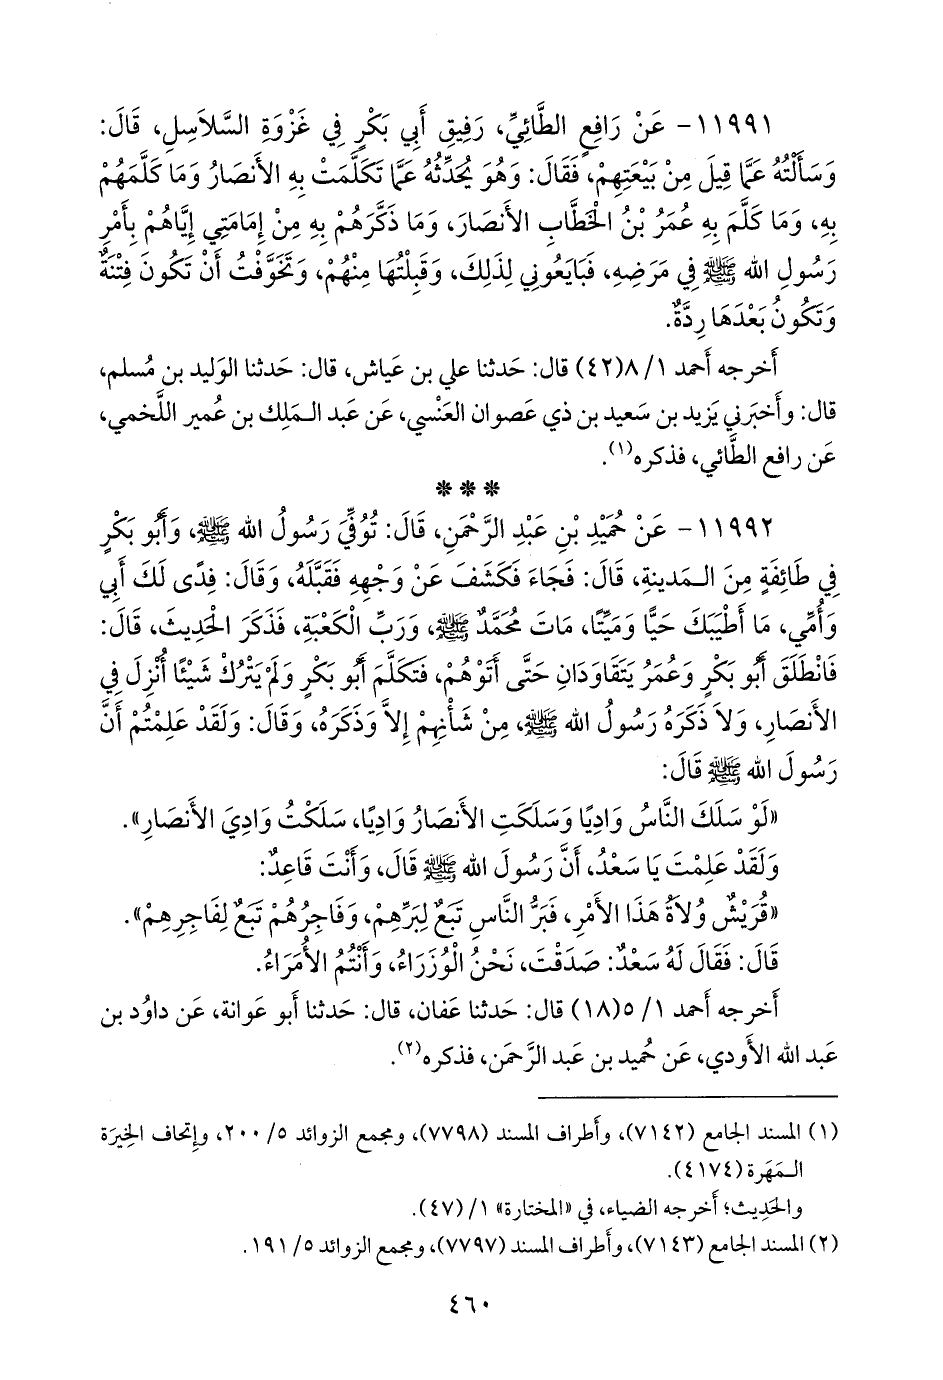 ١١٩٩١- عَنْ رَافِعٍ الطَّائِيِّ، رَفِيقِ أَبِي بَكْرٍ فِي غَزْوَةِ السَّلاَسِلِ، قَالَ:
وَسَأَلْتُهُ عَمَّا قِيلَ مِنْ بَيْعَتِهِمْ، فَقَالَ: وَهُوَ يُحَدِّثُهُ عَمَّا تَكَلَّمَتْ بِهِ الأَنْصَارُ وَمَا كَلَّمَهُمْ
بِهِ، وَمَا كَلَّمَ بِهِ عُمَرُ بْنُ الْخَطَّابِ الأَنْصَارَ، وَمَا ذَكَّرَهُمْ بِهِ مِنْ إِمَامَتِي إِيَّاهُمْ بِأَمْرِ
رَسُولِ الله ﷺ فِي مَرَضِهِ، فَبَايَعُونِي لِذَلِكَ، وَقَبِلْتُهَا مِنْهُمْ، وَتَخَوَّفْتُ أَنْ تَكُونَ فِتْنَةٌ
وَتَكُونُ بَعْدَهَا رِدَّةٌ.
أَخرجه أَحمد ١/ ٨(٤٢) قال: حَدثنا علي بن عَياش، قال: حَدثنا الوَليد بن مُسلم،
قال: وأَخبَرني يَزيد بن سَعيد بن ذي عَصوان العَنْسي، عَن عَبد الـمَلِك بن عُمير اللَّخمي،
عَن رافع الطَّائي، فذكره(١).
* * *
١١٩٩٢- عَنْ حُمَيْدِ بْنِ عَبْدِ الرَّحْمَنِ، قَالَ: تُوُفِّيَ رَسُولُ الله ﷺ، وَأَبُو بَكْرٍ
فِي طَائِفَةٍ مِنَ الـمَدِينَةِ، قَالَ: فَجَاءَ فَكَشَفَ عَنْ وَجْهِهِ فَقَبَّلَهُ، وَقَالَ: فِدًى لَكَ أَبِي
وَأُمِّي، مَا أَطْيَبَكَ حَيًّا وَمَيِّتًا، مَاتَ مُحَمَّدٌ ﷺ، وَرَبِّ الْكَعْبَةِ، فَذَكَرَ الْحَدِيثَ، قَالَ:
فَانْطَلَقَ أَبُو بَكْرٍ وَعُمَرُ يَتَقَاوَدَانِ حَتَّى أَتَوْهُمْ، فَتَكَلَّمَ أَبُو بَكْرٍ وَلَمْ يَتْرُكْ شَيْئًا أُنْزِلَ فِي
الأَنْصَارِ، وَلاَ ذَكَرَهُ رَسُولُ الله ﷺ، مِنْ شَأْنِهِمْ إِلاَّ وَذَكَرَهُ، وَقَالَ: وَلَقَدْ عَلِمْتُمْ أَنَّ
رَسُولَ الله ﷺ قَالَ:
«لَوْ سَلَكَ النَّاسُ وَادِيًا وَسَلَكَتِ الأَنْصَارُ وَادِيًا، سَلَكْتُ وَادِيَ الأَنْصَارِ».
وَلَقَدْ عَلِمْتَ يَا سَعْدُ، أَنَّ رَسُولَ الله ﷺ قَالَ، وَأَنْتَ قَاعِدٌ:
«قُرَيْشٌ وُلاَةُ هَذَا الأَمْرِ، فَبَرُّ النَّاسِ تَبَعٌ لِبَرِّهِمْ، وَفَاجِرُهُمْ تَبَعٌ لِفَاجِرِهِمْ».
قَالَ: فَقَالَ لَهُ سَعْدٌ: صَدَقْتَ، نَحْنُ الْوُزَرَاءُ، وَأَنْتُمُ الأُمَرَاءُ.
أَخرجه أَحمد ١/ ٥(١٨) قال: حَدثنا عَفان، قال: حَدثنا أَبو عَوانة، عَن داوُد بن
عَبد الله الأَودي، عَن حُميد بن عَبد الرَّحمَن، فذكره(٢).
(١) المسند الجامع (٧١٤٢)، وأَطراف المسند (٧٧٩٨)، ومجمع الزوائد ٥/ ٢٠٠، وإتحاف الخِيرَة
الـمَهَرة (٤١٧٤).
والحَدِيث؛ أَخرجه الضياء، في «المختارة» ١/ (٤٧).
(٢) المسند الجامع (٧١٤٣)، وأَطراف المسند (٧٧٩٧)، ومجمع الزوائد ٥/ ١٩١.
٤٦٠